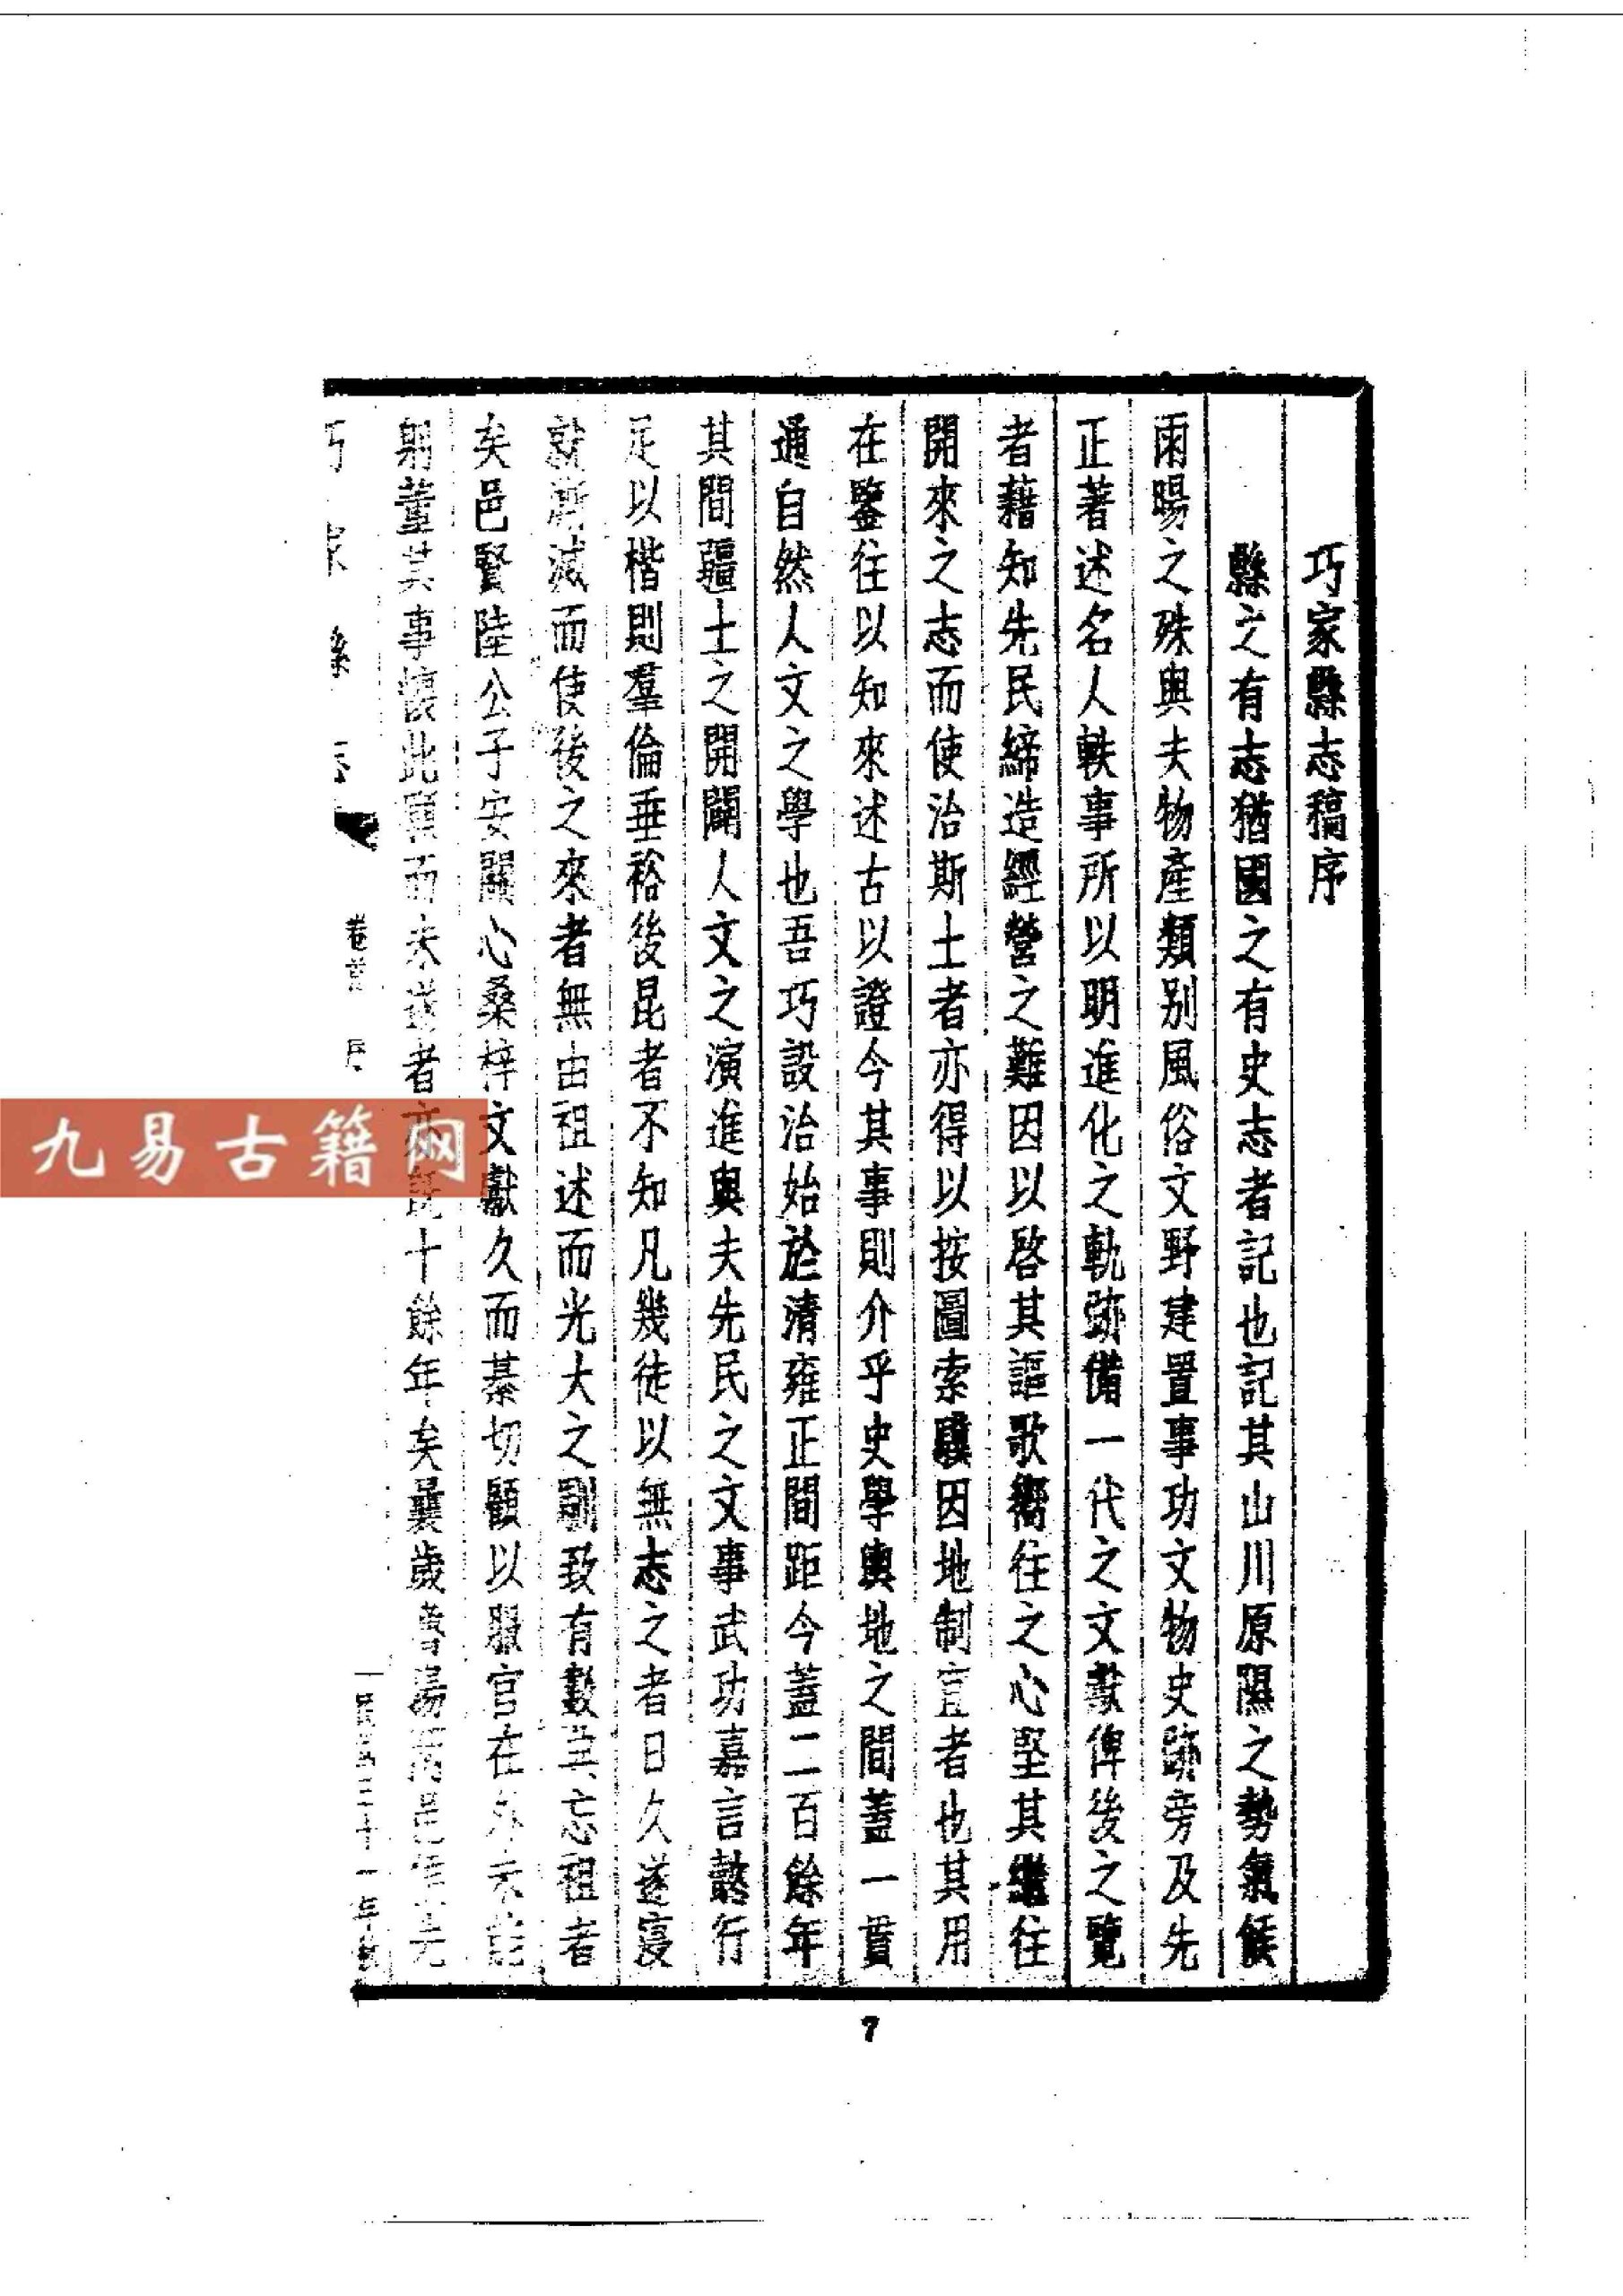 巧家縣志稿序
縣之有志猶國之有史志者記也記其山川原隰之勢氣候
雨暘之殊與夫物產類别風俗文野建置事功文物史跡旁及先
正著述名人軼事所以明進化之軌跡備一代之文獻俾後之覽
者藉知先民締造經營之難因以啓其謳歌嚮往之心堅其繼往
開來之志而使治斯土者亦得以按圖索驥因地制宜者也其用
在鑒往以知來述古以證今其事則介乎史學輿地之間蓋一貫
通自然人文之學也吾巧設治始於清雍正間距今蓋二百餘年
其間疆土之開闢人文之演進與夫先民之文事武功嘉言懿行
足以楷則羣倫垂裕後昆者不知凡幾徒以無志之者日久遂寖
就漸滅而使後之來者無由祖述而光大之馴致有數典忘祖者
矣邑賢陸公子安關心桑梓文獻久而綦切顧以服官在外未能
躬董其事懷此願而未遂者亦既十餘年矣曩歲曾湯邑
巧家縣志
卷首 序
民國三十一年
7
九易古籍网